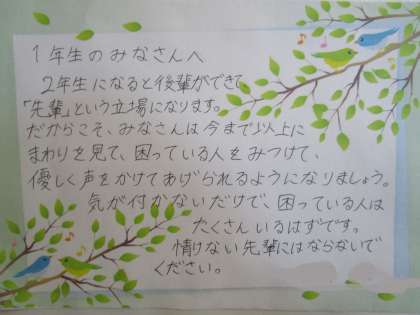 1年生のみなさんへ
2年生になると後輩ができて、
「先輩」という立場になります。
だからこそ、みなさんは今まで以上に
まわりを見て、困っている人をみつけて、
優しく声をかけてあげられるようになりましょう。
気が付かないだけで、困っている人は
たくさんいるはずです。
情けない先輩にはならないで
ください。